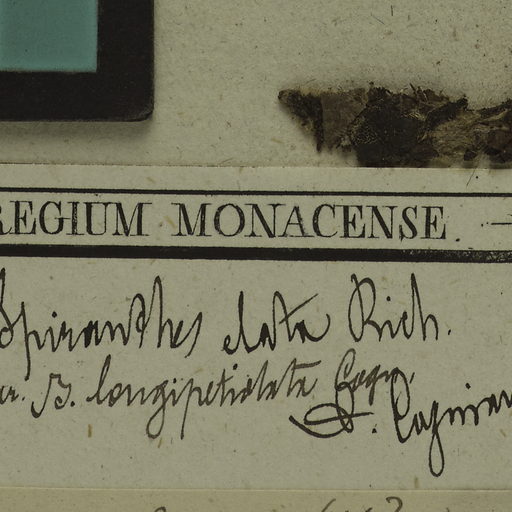 REGIUM MONACENSE.
Spiranthes elata Rich.
B. longipetiolata Cogn.
A. Cogniau